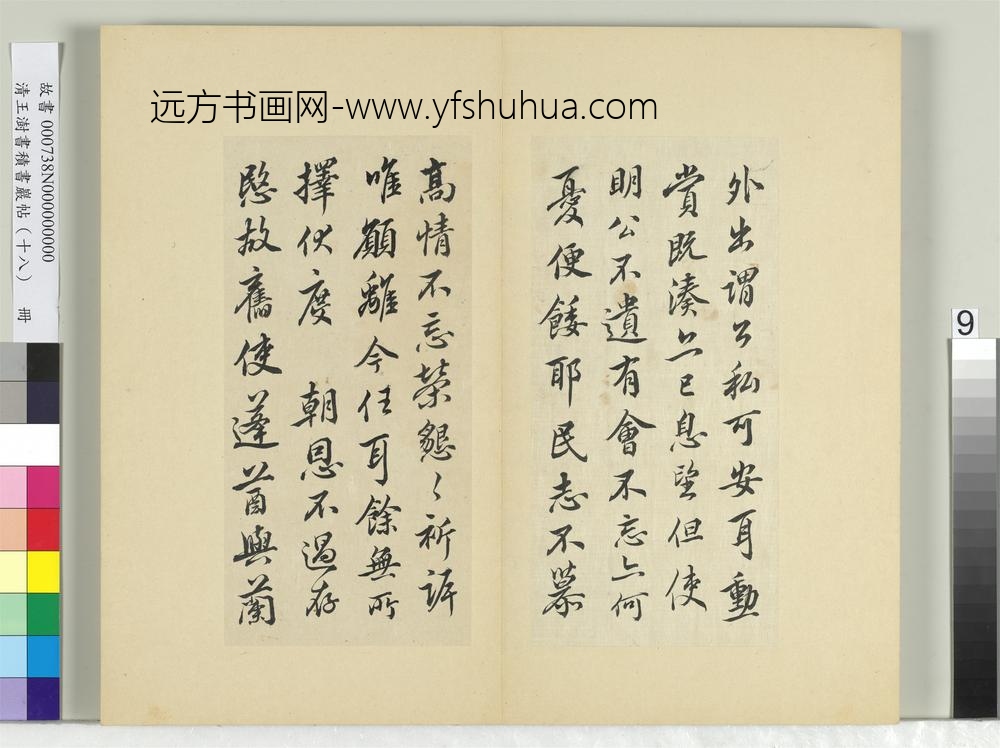 远方书画网-www.yfshuhua.com
故書 000738N000000000
清王澍書積書巖帖（十八） 冊
9
外出謂公私可安耳動
賞既湊亦已息望但使
明公不遺有會不忘亦何
憂便餧耶民志不慕
高情不忘榮懇〻祈訴
唯願離今任耳餘無所
擇伏度 朝恩不過存
愍故舊使蓬蒭與蘭